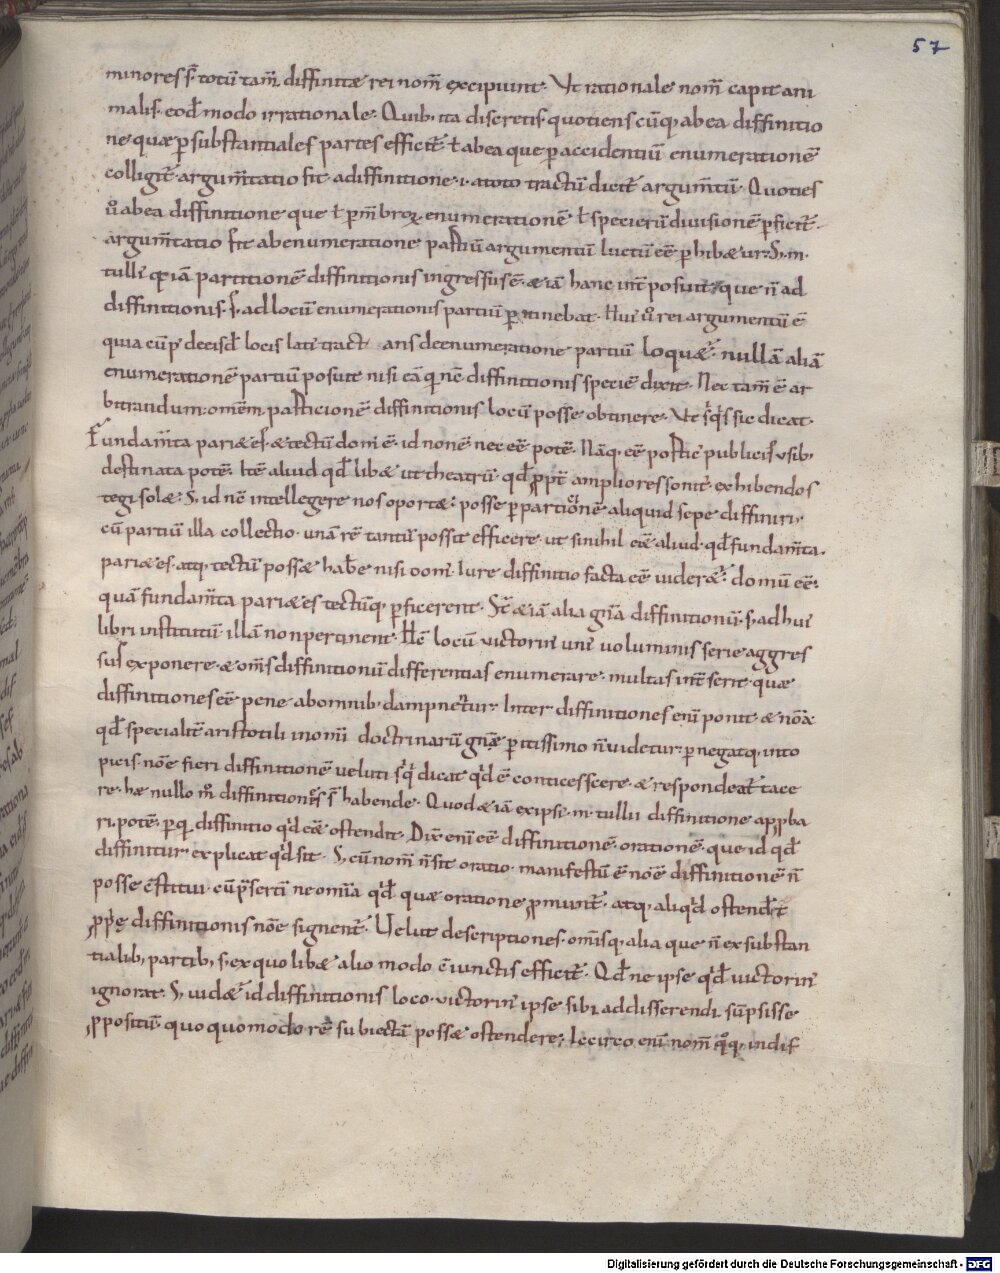 57
minores s̄ totū tam̄ diffinitæ rei nom̄ excipiunt. Vt rationale nom̄ capit ani
malis. eod̄ modo irrationale. Quib; ita discretis. quotiens cūq; ab ea diffinitio
ne quæ p̄ substantiales partes efficit̄ ł ab ea que p̄ accidentiū enumerationē
colligit̄. argum̄tatio fit. a diffinitione .i. a toto tractū dicit̄ argum̄tū. Quoties
u̅o ab ea diffinitione que ł p̄ mēbroꝝ enumerationē ł specierū diuisionē p̄ficit̄.
argum̄tatio fit ab enumeratione partiū argumentū luctū eē p̄hibæ ur. S; m.
tulli q̄ iam partitionē diffinitionis ingressus ē. & iā hanc int̄posuit que n̄ ad
diffinitionis. s; ad locū enumerationis partiū p̄tinebat. Hui u̅o rei argumentū ē
quia cū p̄ decisd̄ locis lati tract ans de enumeratione partiū loquǣr. nullā aliā
enumerationē partiū posuit nisi eā q̄ nē diffinitionis speciē dixit. Nec tam̄ ē ar
bitrandum. omēm particionē diffinitionis locū posse obtinere. Vt s̄ q̄s sic dicat.
Fundam̄ta pariæ s̄. & tectū dom̄ ē. id non ē. nec eē potē. Nāq; eē portic publicis usib;
destinata potē. Itē aliud qd̄ libæ ut theatrū. qd̄ ꝓpt̄ ampliores sonit. exhibendos
tegi solæ. S; id nē intellegere nos oportæ. posse p̄ partionē aliquid sepe diffiniri.
cū partiū illa collectio. unā rē tantū possit efficere. ut si nihil eēæ aliud. qd̄ fundam̄ta.
pariæ es. atq; tectū possæ hab̄e nisi dom̄. Iure diffinitio facta eē uiderǣ. domū eē.
quā fundam̄ta pariæ es tectūq; p̄ficerent. S̄t & iā alia gn̄a diffinitionū. s; ad hui
libri institutū illā non pertinent. Hc̄ locū victorin uni uoluminis serie aggres
sus exponere. & om̄s diffinitionū differentias enumerare. multas int̄ serit. quæ
diffinitiones eē pene ab omnib; dampnet̄ur. Inter diffinitiones enī ponit & nōīa
qd̄ specialit̄ aristotili in om̄i doctrinarū gn̄æ p̄itissimo n̄ uidetur. p̄ negatq; in to
picis. nōē fieri diffinitionē ueluti s̄ q̄ dicat qd̄ ē conticesscere. & respondeat̄ tace
re. hæ nullo m̄ diffinitionis s̄ habende. Quod & iā ex ipsi. m. tullii diffinitione appba
ri. potē. p̄q̄ diffinitio q̄d eēæ ostendit. Dix̄ enī eē diffinitionē. orationē. que id qd̄
diffinitur explicat q̄d sit. S; cū nom̄ n̄ sit oratio. manifestū ē nōē diffinitionē n̄
posse c̄stitui. cū p̄sertī ne omīa q̄d quæ oratione ꝓmunt̄. atq; aliq̄d ostendit̄
ꝓpꝑę diffinitionis nōē signent̄. Velut descriptiones. om̄isq; alia que n̄ ex substan
tialib; partib; s; ex quo libæ alio modo c̄iunctis efficit̄. Qd̄ ne ipse q̄d victorin
ignorat. S; uidǣ id diffinitionis loco. victorin ipse sibi ad disserendi. sūpsisse
ꝓpositū. quo quomodo rē subiectā possæ ostendere. Iccirco enī nom̄ q̄q; in dif
Digitalisierung gefördert durch die Deutsche Forschungsgemeinschaft - DFG